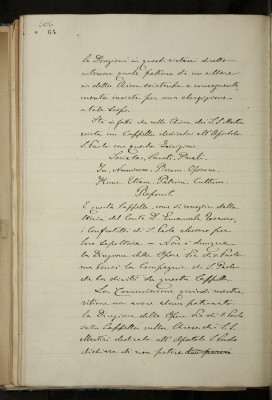 64
la Direzione in questi ultimi
altrimenti quale patrona di un altare
in detta Chiesa esistente e conseguente
mente insiste per una elargizione
a tale scopo.
Sta in fatto che nella Chiesa dei S.S. Martiri
esiste una Cappella dedicata all'Apostolo
S. Paolo con questa Iscrizione
Societas Sancti Pauli
In Annuorum Piorum Operum
Hunc Etiam Patroni Cultum
Proposuit.
E questa Cappella, come si raccoglie dalla
Storia del Conte D. Emanuele Tesauro,
i Confratelli di S. Paolo elessero per
loro Sepoltura — Non è dunque
la Direzione delle Opere Pie di S. Paolo
ma bensì la Compagnia di S. Paolo
che ha diritti su questa Cappella.
La Commissione quindi mentre
ritiene non avere alcun patronato
la Direzione delle Opere Pie di S. Paolo
sulla Cappella nella Chiesa dei S.S.
Martiri dedicata all'Apostolo S. Paolo
dichiara di non potere